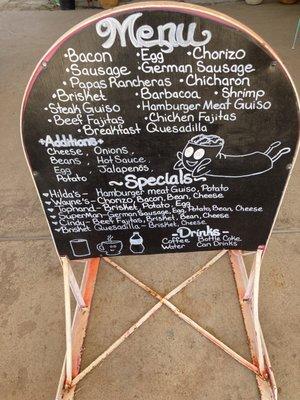 Menu
•Bacon •Egg •Chorizo
•Sausage •German Sausage
•Papas Rancheras •Chicharon
•Brisket •Barbacoa •Shrimp
Steak Guiso •Hamburger Meat Guiso
•Beef Fajitas •Chicken Fajitas
•Breakfast Quesadilla
Additions
Cheese, Onions
Beans, Hot Sauce
Egg Jalapeños
Potato
~Specials~
•Hilda's- Hamburger meat Guiso, Potato
•Wayne's- Chorizo, Bacon, Bean, Cheese
•Tophand- Brisket, Potato, Egg
•SuperMan- German Sausage, Egg, Potato, Bean, Cheese
•Cindy- Beef Fajita, Brisket, Bean, Cheese
•Brisket Quesadilla- Brisket, Cheese
~Drinks~
Coffee Bottle Coke
Water Can Drinks